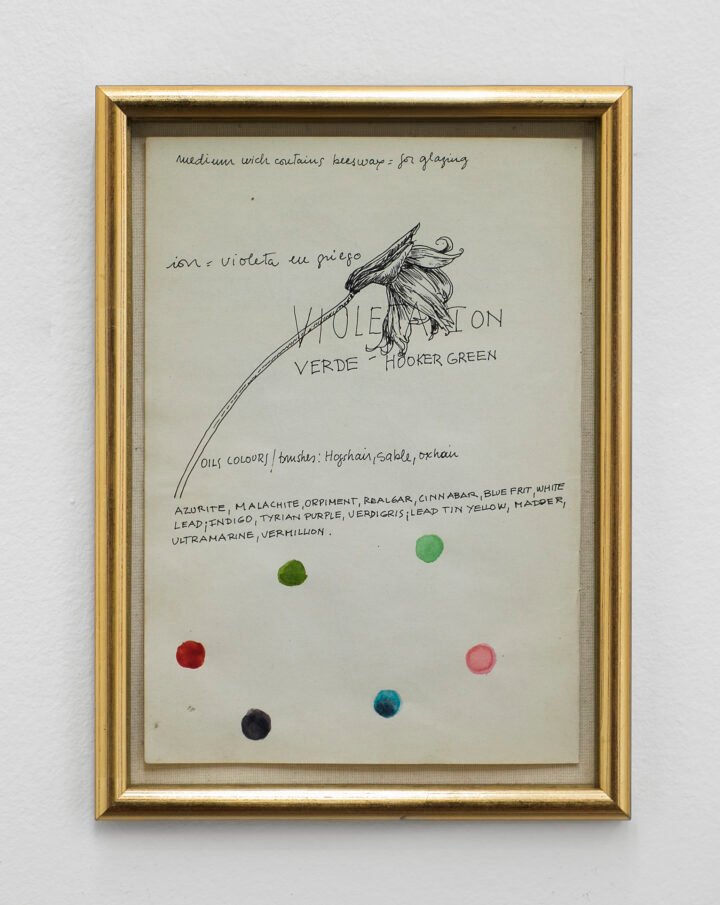 medium wich contains beeswax = for glazing
ion = violeta en griego
VIOLETA ION
VERDE - HOOKER GREEN
OILS COLOURS / brushes: Hogshair, Sable, oxhair
AZURITE, MALACHITE, ORPIMENT, REALGAR, CINNABAR, BLUE FRIT, WHITE
LEAD; INDIGO, TYRIAN PURPLE, VERDIGRIS; LEAD TIN YELLOW, MADDER,
ULTRAMARINE, VERMILLION.